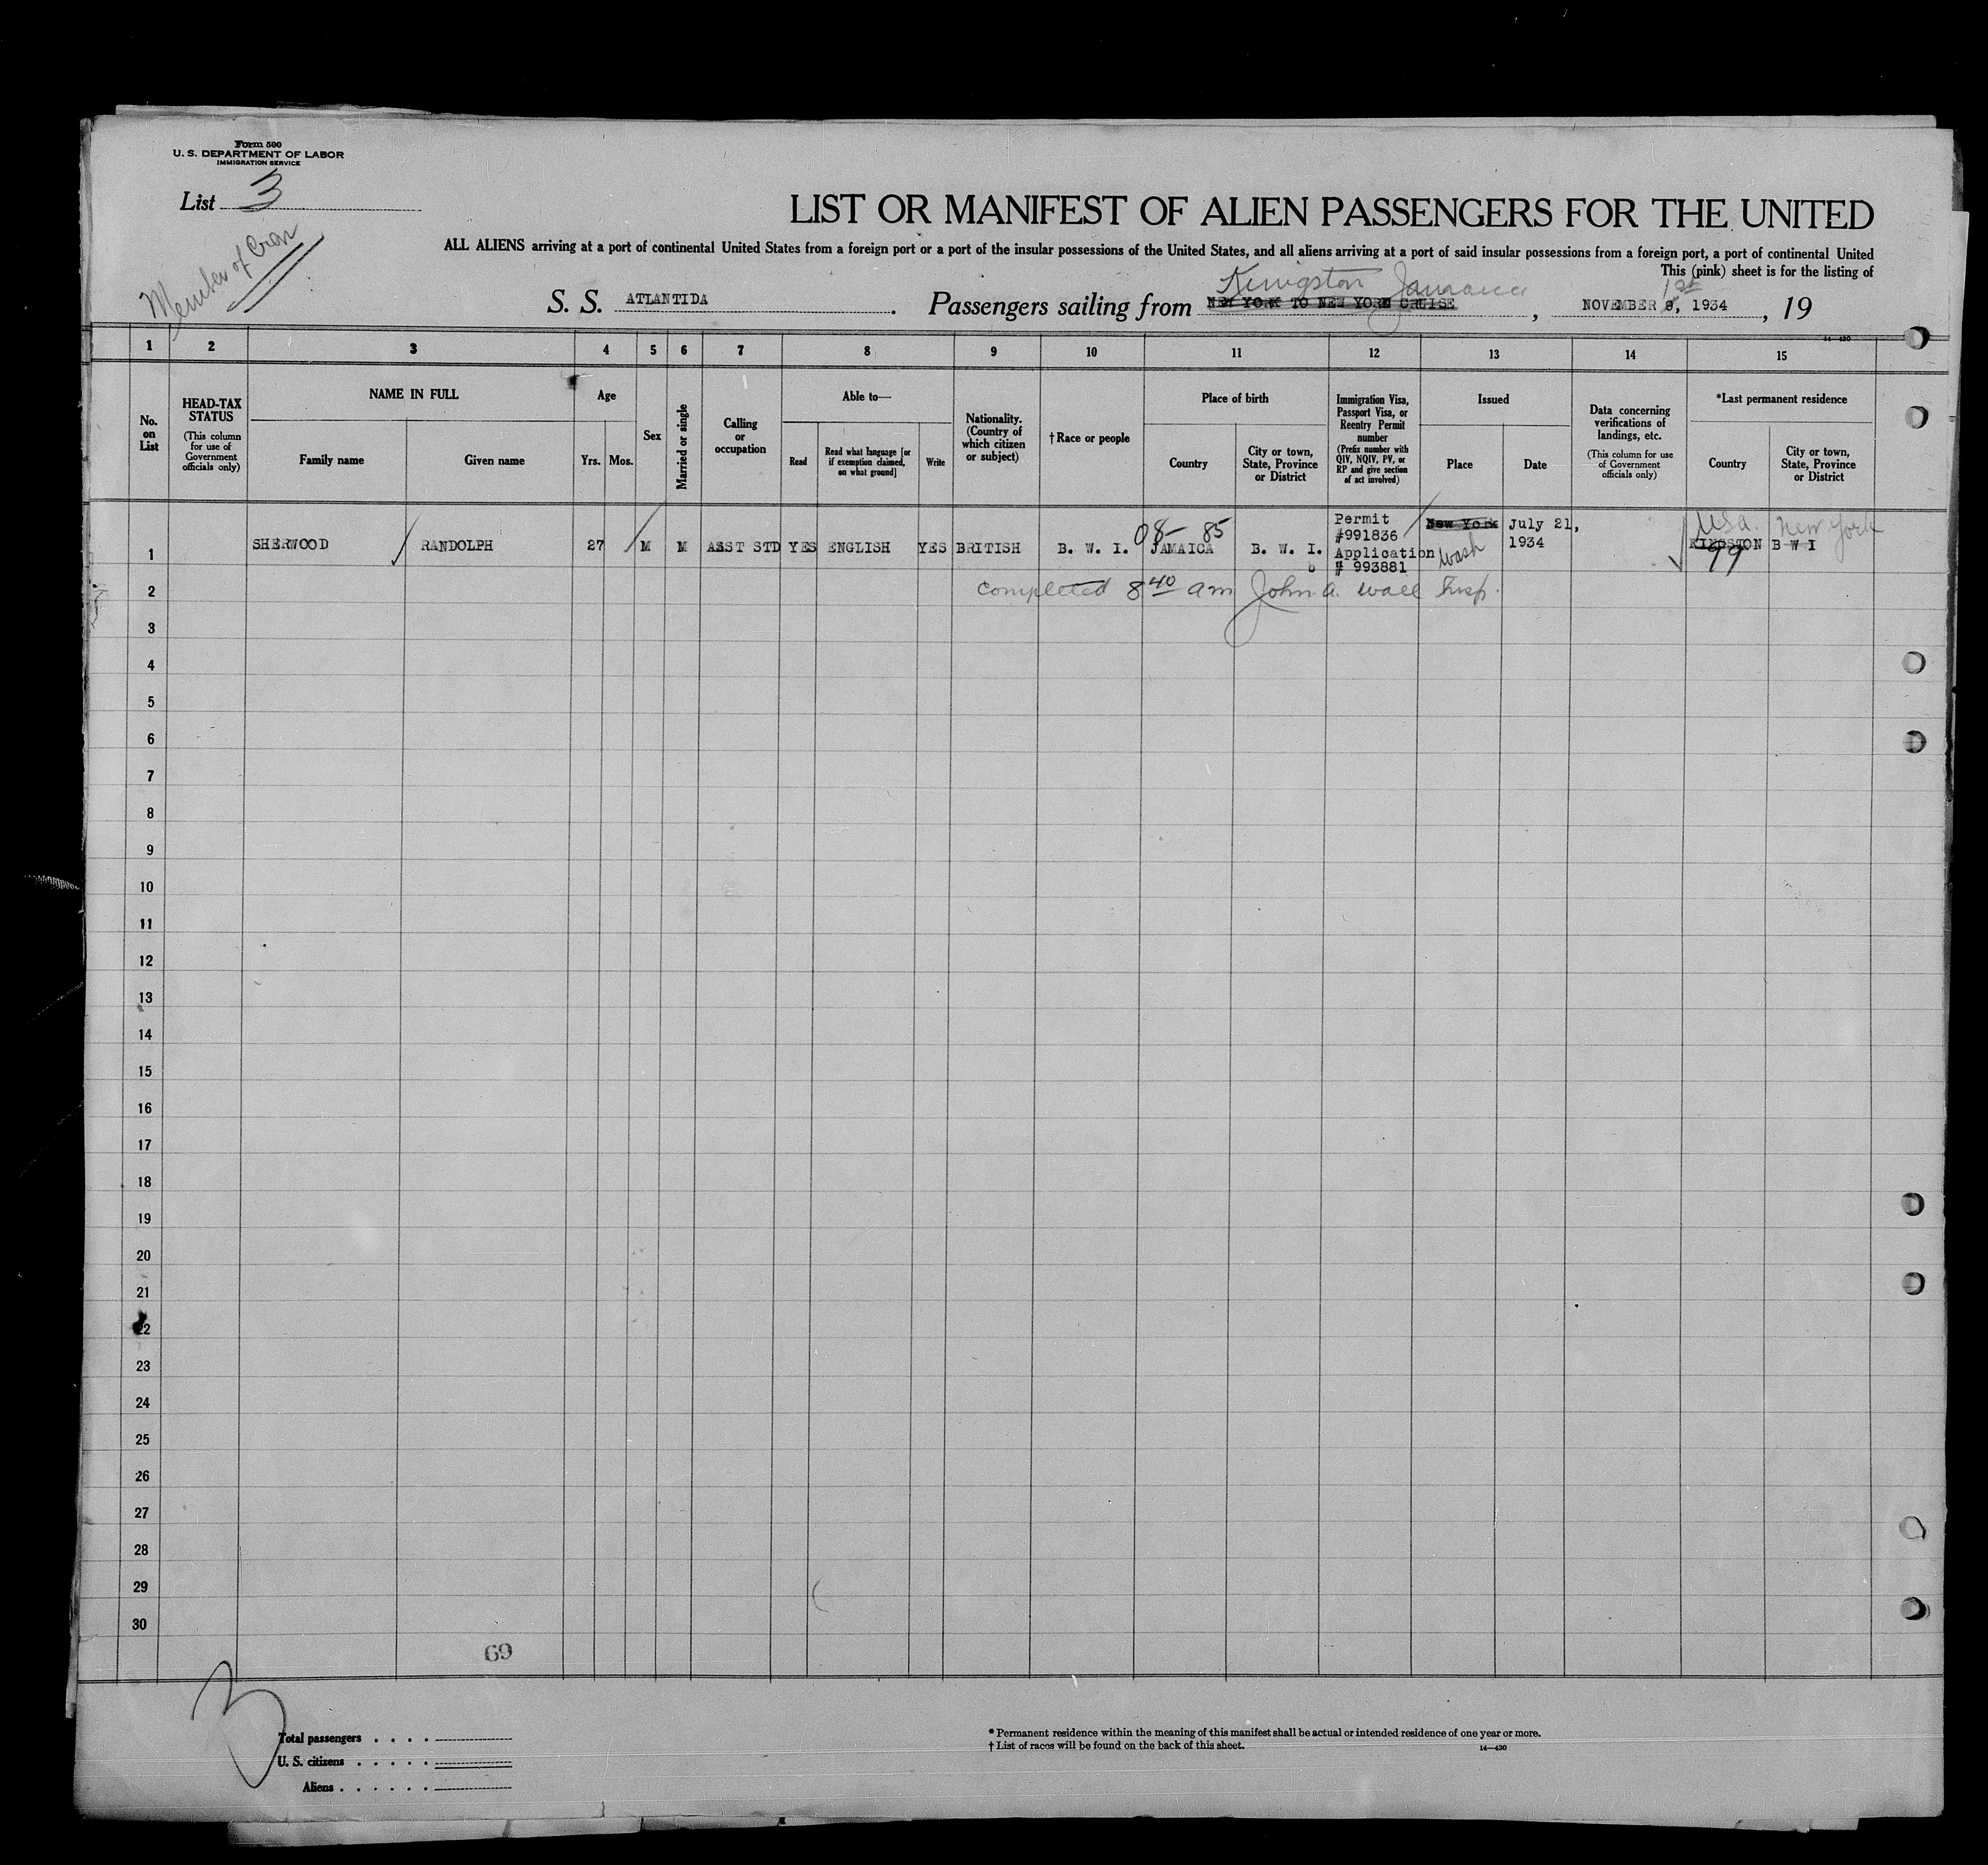 Form 500
U. S. DEPARTMENT OF LABOR
IMMIGRATION SERVICE
List 3
Member of Crew
LIST OR MANIFEST OF ALIEN PASSENGERS FOR THE UNITED
ALL ALIENS arriving at a port of continental United States from a foreign port or a port of the insular possessions of the United States, and all aliens arriving at a port of said insular possessions from a foreign port, a port of continental United
This (pink) sheet is for the listing of
Kingston Jamaica 1st
S. S. ATLANTIDA. Passengers sailing from NEW YORK TO NEW YORK CRUISE, NOVEMBER 8, 1934, 19
14—430
1 2 3 4 5 6 7 8 9 10 11 12 13 14 15
No. on List
HEAD-TAX STATUS
(This column for use of Government officials only)
NAME IN FULL
Family name
Given name
Age
Yrs.
Mos.
Sex
Married or single
Calling or occupation
Able to—
Read
Read what language [or if exemption claimed, on what ground]
Write
Nationality. (Country of which citizen or subject)
†Race or people
Place of birth
Country
City or town, State, Province or District
Immigration Visa, Passport Visa, or Reentry Permit number
(Prefix number with QIV, NQIV, PV, or RP and give section of act involved)
Issued
Place
Date
Data concerning verifications of landings, etc.
(This column for use of Government officials only)
*Last permanent residence
Country
City or town, State, Province or District
1 SHERWOOD RANDOLPH 27 M M ASST STD YES ENGLISH YES BRITISH B. W. I. 08- 85 JAMAICA B. W. I. Permit #991836 Application # 993881 New York Wash July 21, 1934 USA. New York KINGSTON B W I 99
2 completed 8 40 am John A. Wall Insp.
3
4
5
6
7
8
9
10
11
12
13
14
15
16
17
18
19
20
21
22
23
24
25
26
27
28
29
30
69
3
Total passengers . . . .
U. S. citizens . . . . .
Aliens . . . . . .
* Permanent residence within the meaning of this manifest shall be actual or intended residence of one year or more.
† List of races will be found on the back of this sheet.
14—430